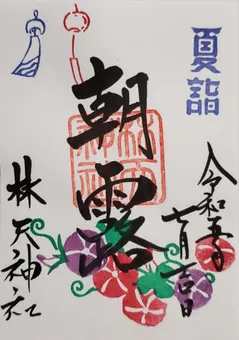 夏詣
令和五年
七月吉日
朝露
林天神社